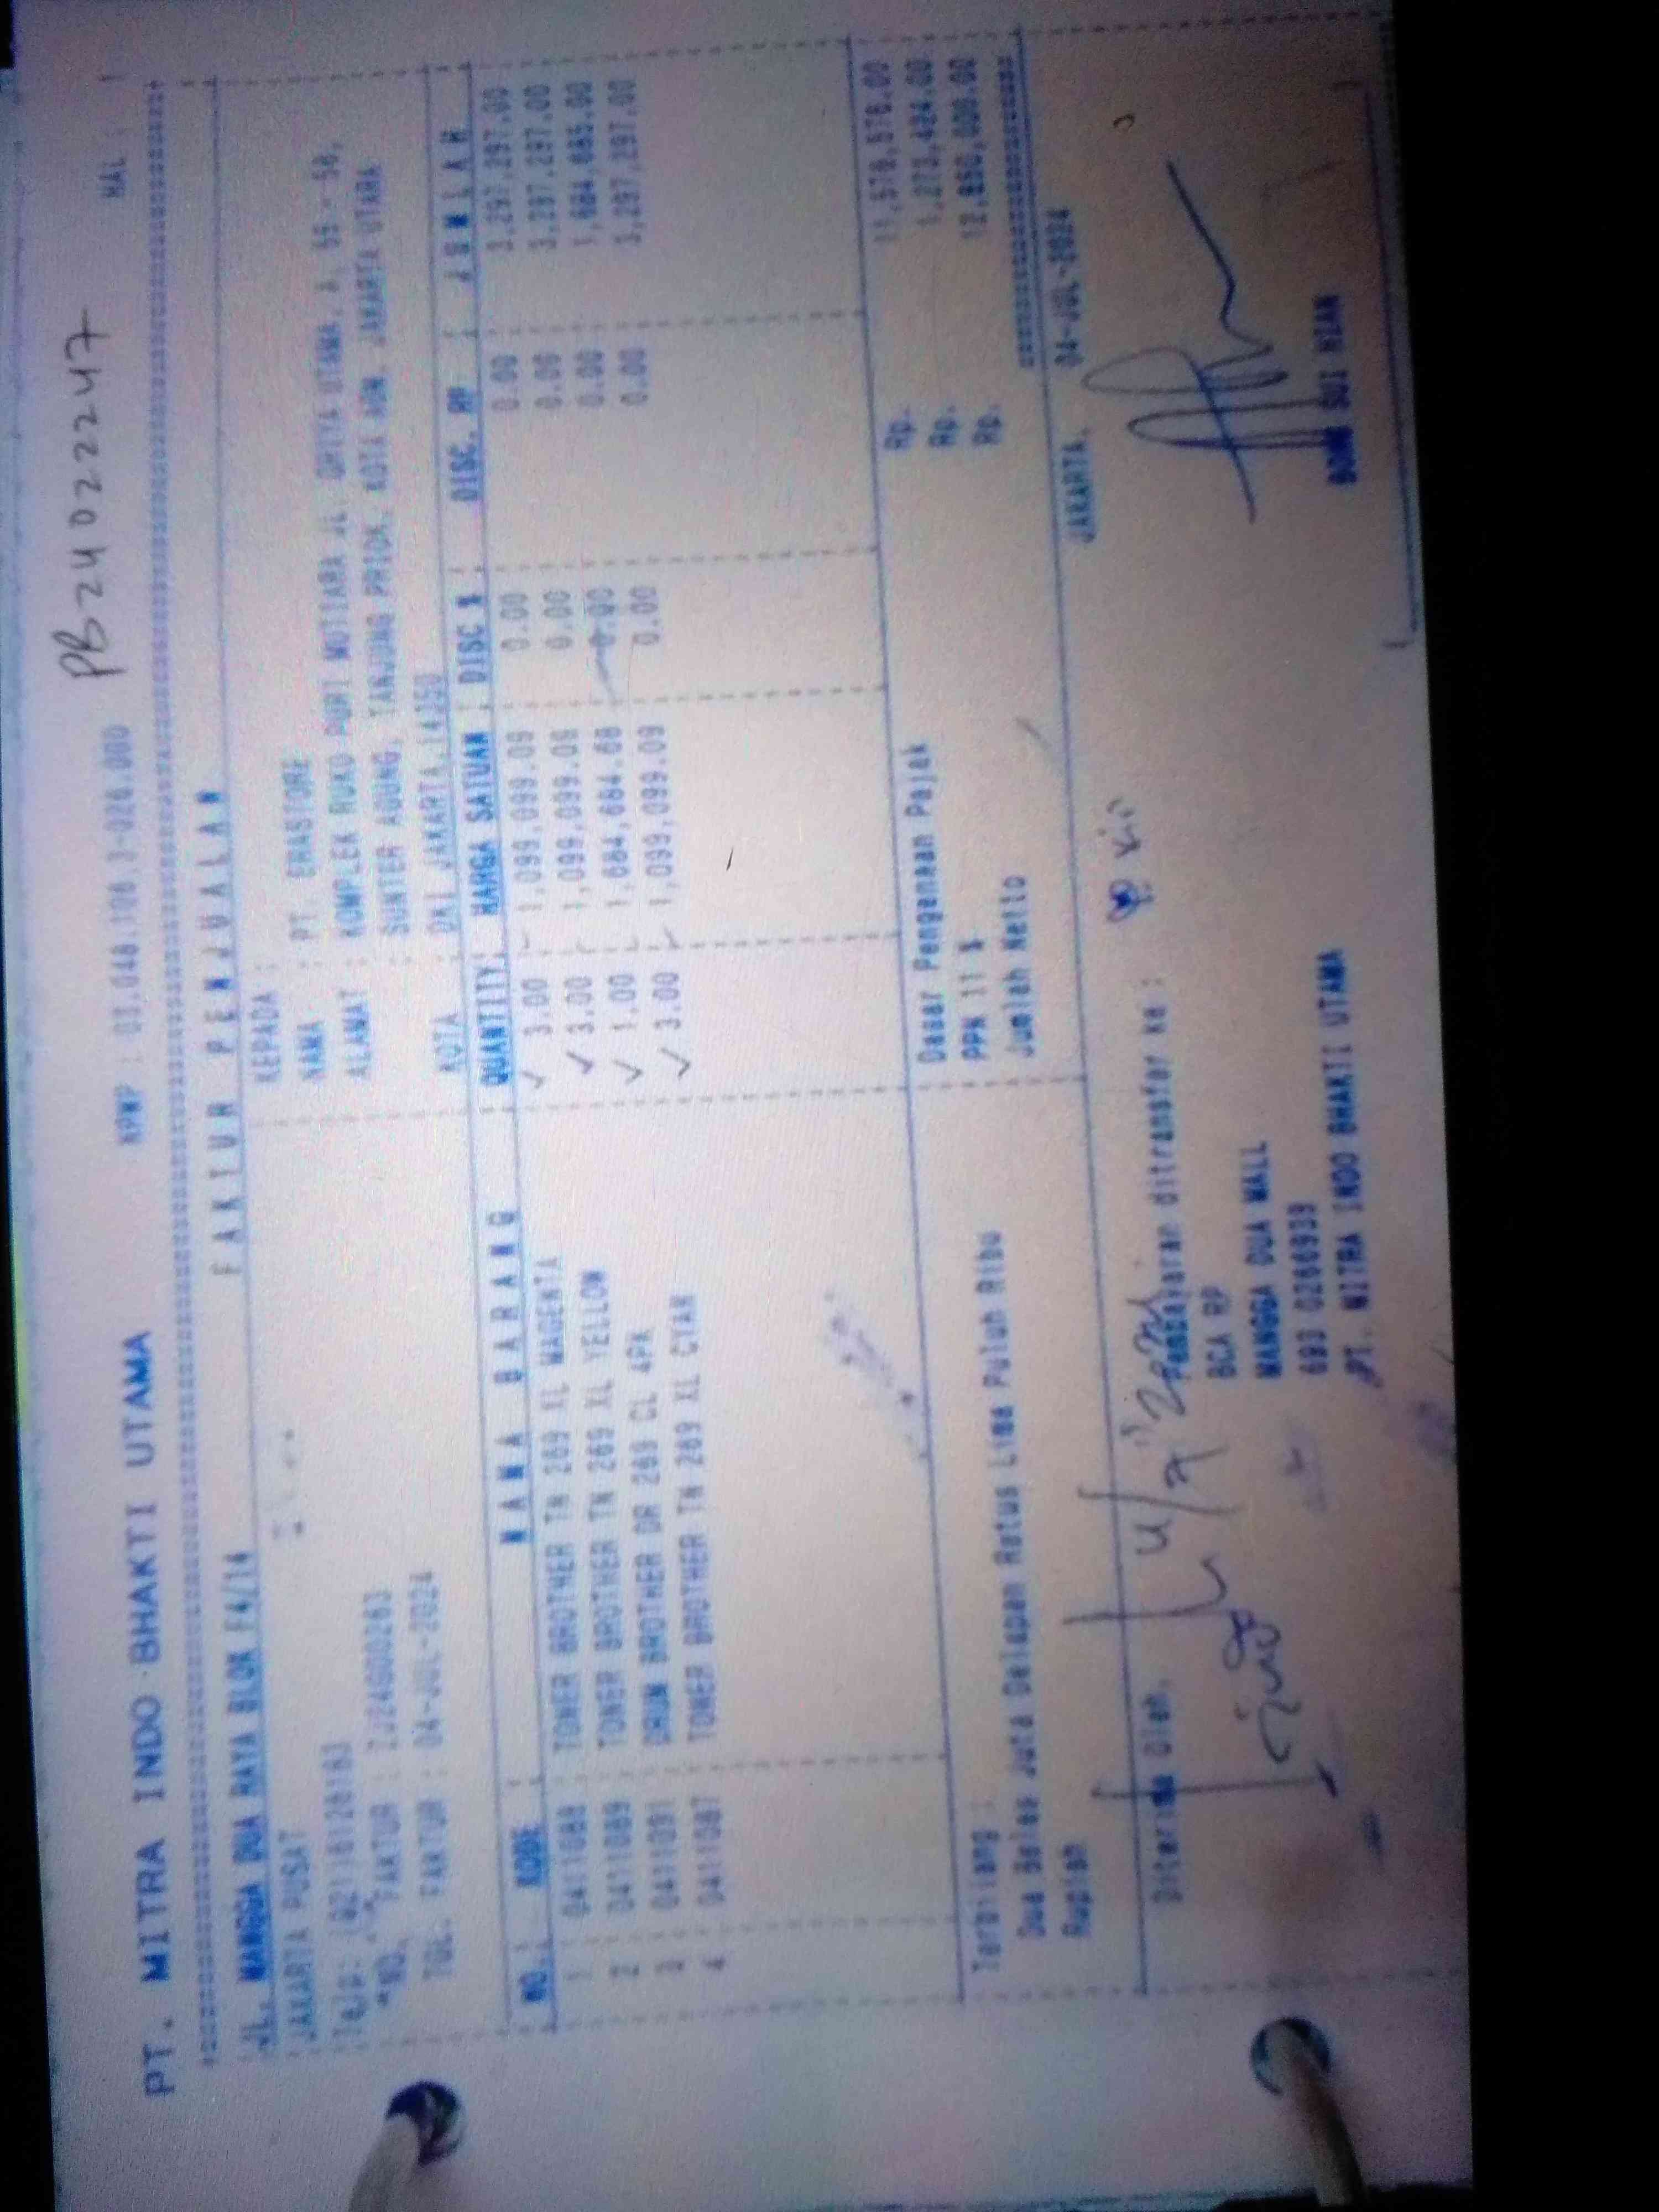 PB2402247
PT. MITRA INDO BHAKTI UTAMA NPWP : HAL :
FAKTUR PENJUALAN
JL. MANGGA DUA RAYA BLOK F4/14
JAKARTA PUSAT
KEPADA :
NAMA : PT. ERASTORE
ALAMAT : KOMPLEK RUKO PURI MUTIARA JL. GRIYA UTAMA,
SUNTER AGUNG, TANJUNG PRIOK, KOTA ADM. JAKARTA UTARA
KOTA : DKI JAKARTA,14350
NO. FAKTUR :
TGL. FAKTUR : 04-JUL-2024
NO. KODE NAMA BARANG QUANTITY HARGA SATUAN DISC % DISC. RP JUMLAH
1 0411088 TONER BROTHER TN 269 XL MAGENTA 3.00 1,099,099.09 0.00 0.00 3,297,297.00
2 0411089 TONER BROTHER TN 269 XL YELLOW 3.00 1,099,099.09 0.00 0.00 3,297,297.00
3 0411091 DRUM BROTHER DR 269 CL 4PK 1.00 1,684,684.68 0.00 0.00 1,684,685.00
4 0411087 TONER BROTHER TN 269 XL CYAN 3.00 1,099,099.09 0.00 0.00 3,297,297.00
Terbilang :
Dua Belas Juta Delapan Ratus Lima Puluh Ribu
Rupiah
Dasar Pengenaan Pajak Rp. 11,576,576.00
PPN 11 % Rp. 1,273,424.00
Jumlah Netto Rp. 12,850,000.00
JAKARTA, 04-JUL-2024
Diterima Oleh,
Pembayaran ditransfer ke :
BCA RP
MANGGA DUA MALL
693 0266939
PT. MITRA INDO BHAKTI UTAMA